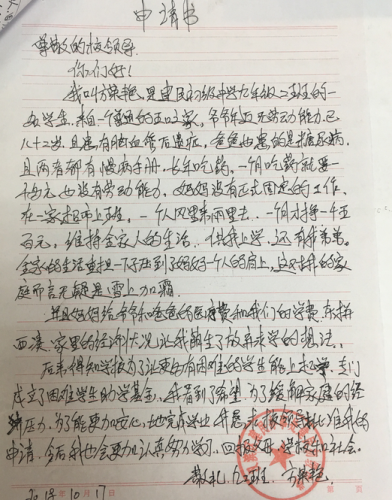 申请书
尊敬的校领导:
你们好!
我叫万荣艳,是建民初级中学九年级二班的一
名学生,来自一个贫困的五口之家,爷爷年迈无劳动能力,已
八十二岁,且患有脑血管后遗症,爸爸也患的是糖尿病,
且两者都有慢病手册,长年吃药,一月吃药就要一
千多元,也没有劳动能力,妈妈没有正式固定的工作,
在一家超市上班,一个人风里来雨里去,一个月才挣一千五
百元,维持全家人的生活,供我上学,还有我弟弟。
全家的生活重担一下子压到了妈妈一个人的肩上,这对我的家
庭而言无疑是雪上加霜。
并且妈妈给爷爷和爸爸的医疗费和我们的学费,东拼
西凑,家里的经济状况让我萌生了放弃求学的想法。
后来得知学校为了让更多有困难的学生能上起学,专门
成立了困难学生助学基金,我看到了希望,为了缓解家庭的经
济压力,为了能更加安心地完成学业,我恳求校领导批准我的
申请,今后我也会更加认真努力学习,回报父母、学校和社会。
敬礼 九、二班 万荣艳
2018年10月17日